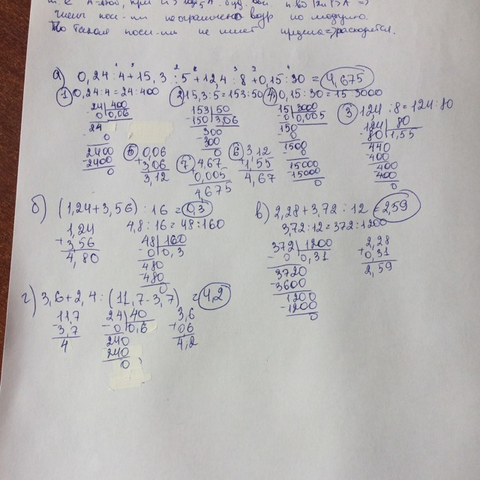 а) 0,24 : 4 + 15,3 : 5 + 12,4 : 8 + 0,15 : 30 = 4,675
① 0,24 : 4 = 24 : 400
24 | 400
0 | 0,06
24
0
2400
2400
0
② 15,3 : 5 = 153 : 50
153 | 50
-150 | 3,06
300
-300
0
④ 0,15 : 30 = 15 : 3000
15 | 3000
0 | 0,005
150
0
1500
0
15000
-15000
0
③ 12,4 : 8 = 124 : 80
124 | 80
80 | 1,55
440
-400
400
-400
0
⑤ 0,06
+3,06
3,12
⑥ 3,12
+1,55
4,67
⑦ 4,67
0,005
4,675
б) (1,24 + 3,56) : 16 = 0,3
1,24
+3,56
4,80
4,8 : 16 = 48 : 160
48 | 160
0 | 0,3
480
-480
0
в) 2,28 + 3,72 : 12 = 2,59
3,72 : 12 = 372 : 1200
372 | 1200
-0 | 0,31
3720
-3600
1200
-1200
0
2,28
+0,31
2,59
г) 3,6 + 2,4 : (11,7 - 3,7) = 4,2
11,7
-3,7
4
24 | 40
-0 | 0,6
240
240
0
3,6
+0,6
4,2